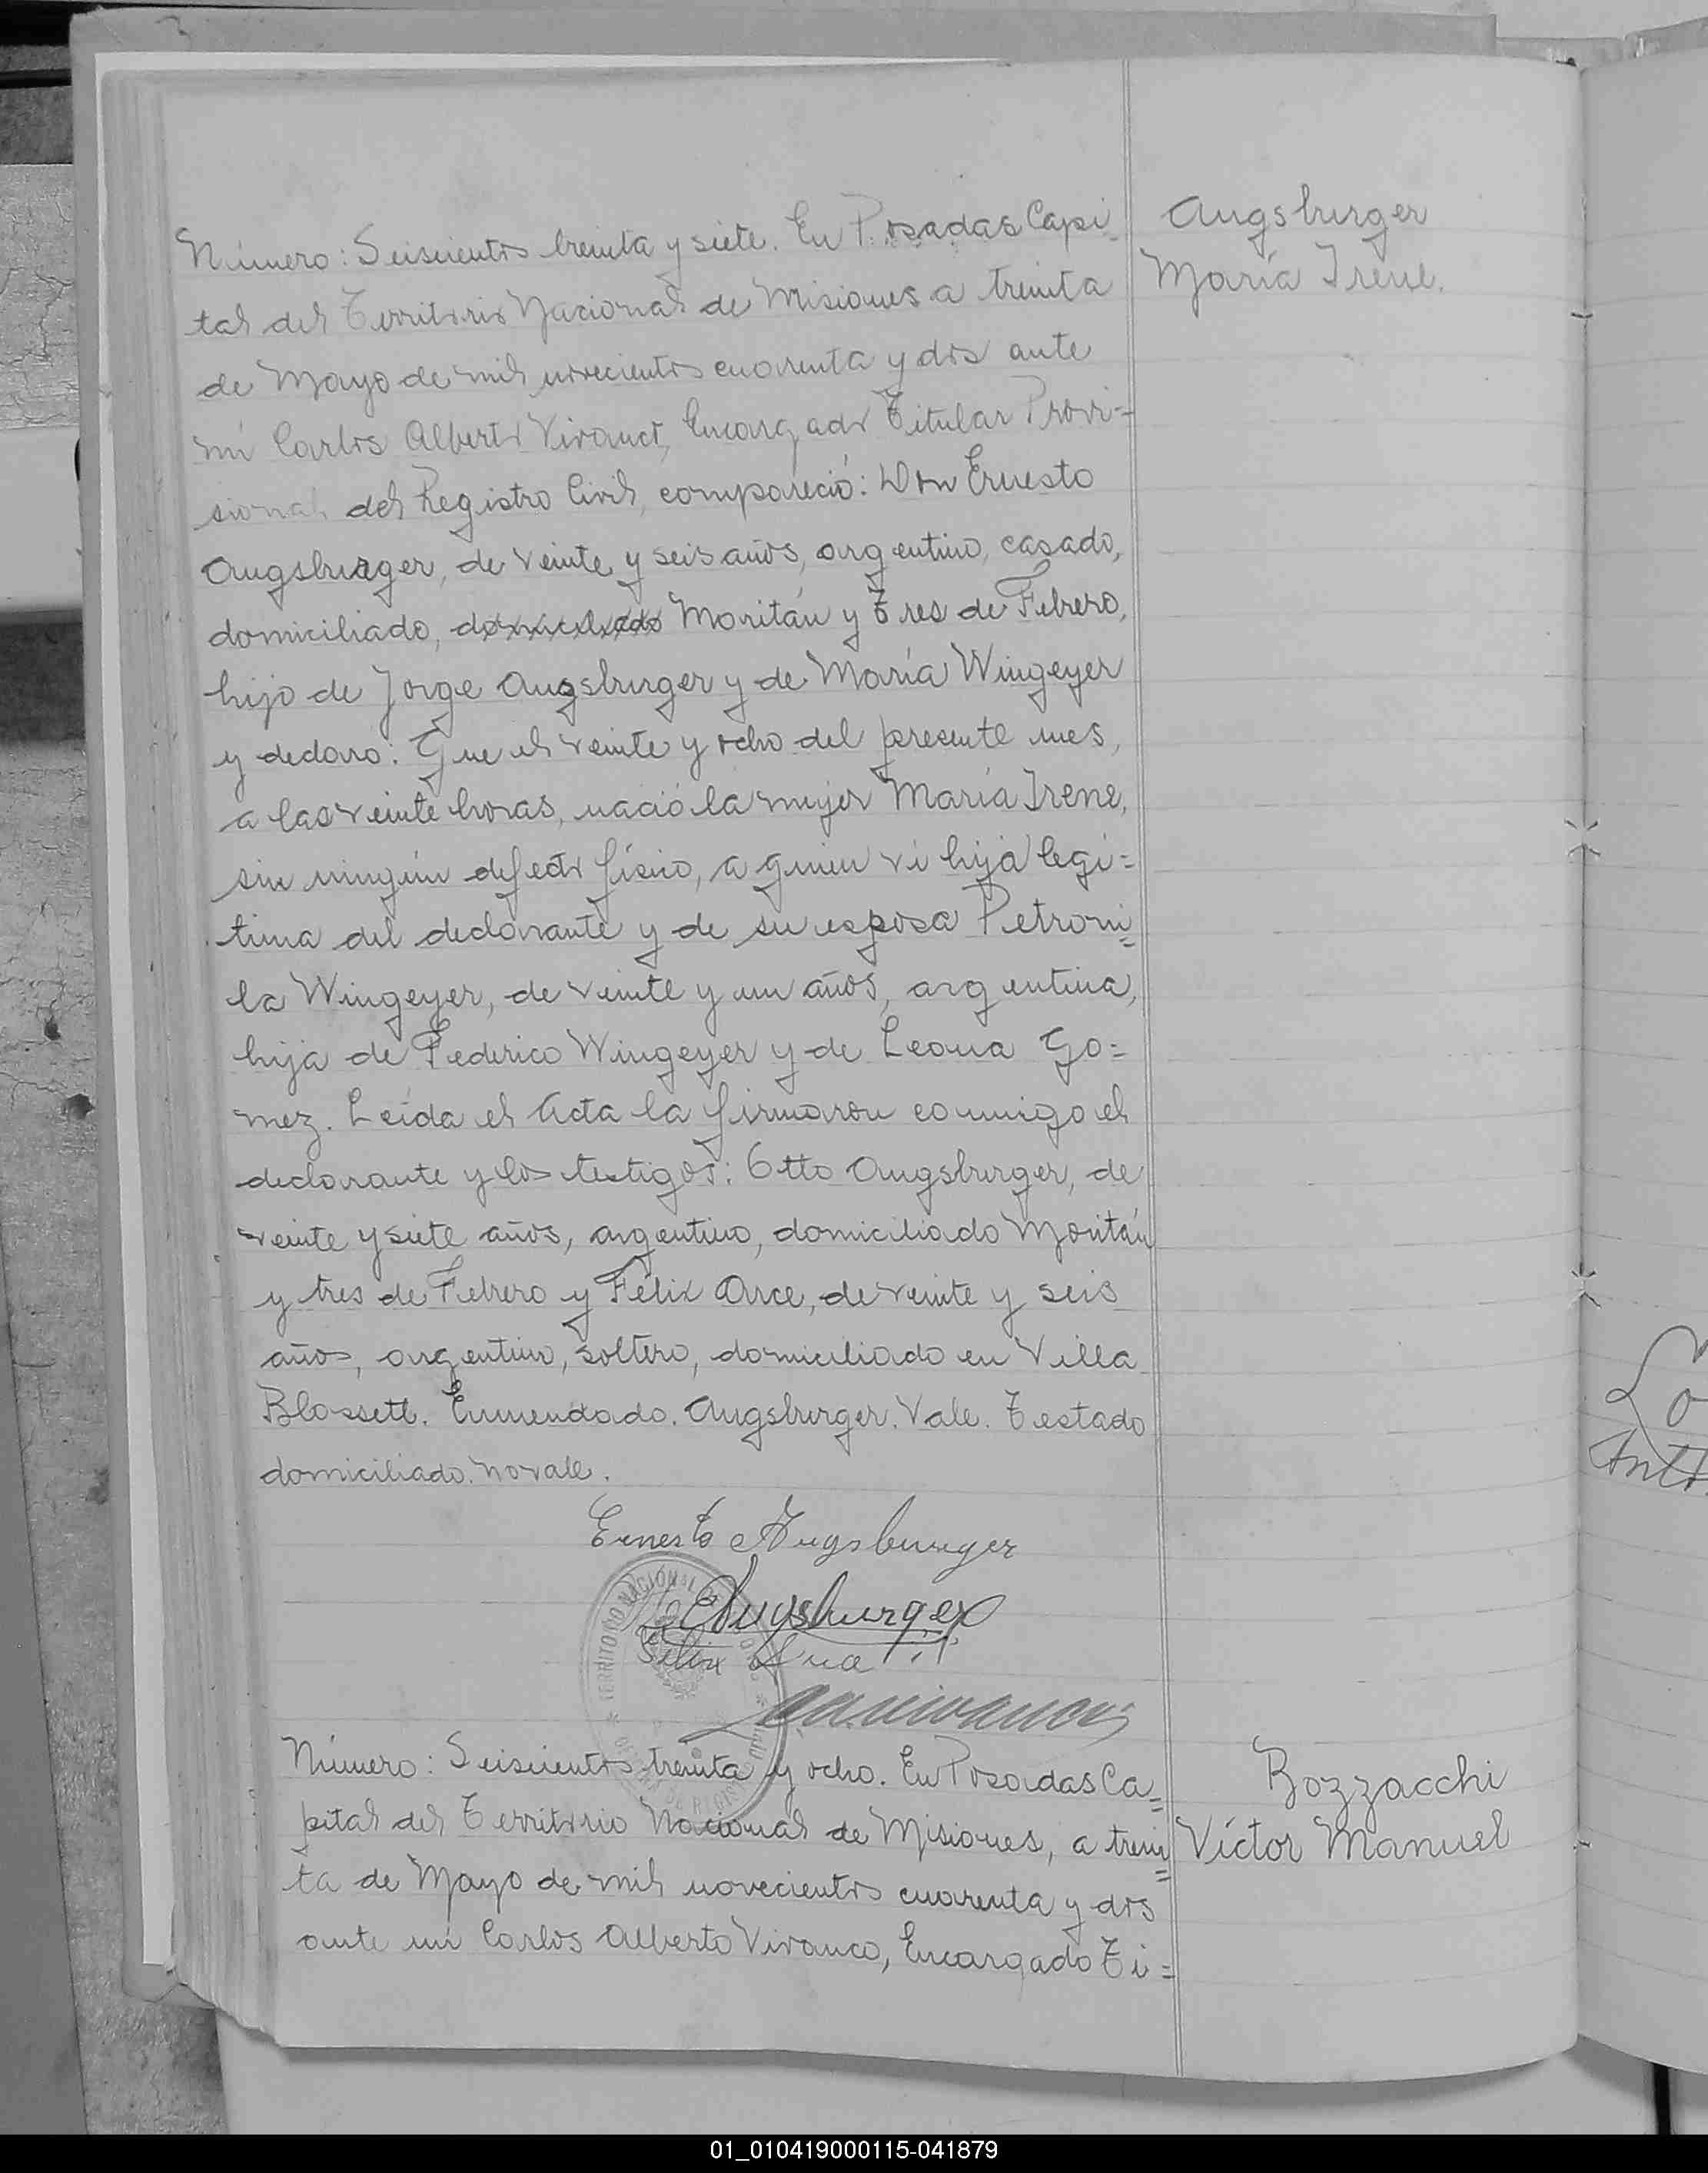 Augsburger
María Irene.
Número: Seiscientos treinta y siete. En Posadas Capi-
tal del Territorio Nacional de Misiones a treinta
de Mayo de mil novecientos cuarenta y dos ante
mi Carlos Alberto Vivanco, Encargado Titular Provi=
sional del Registro Civil, compareció: Don Ernesto
Augsburger, de veinte y seis años, argentino, casado,
domiciliado, domiciliado Moritán y Tres de Febrero,
hijo de Jorge Augsburger y de María Wingeyer
y declaro: Que el veinte y ocho del presente mes,
a las veinte horas, nació la mujer María Irene,
sin ningún defecto físico, a quien vi hija legi=
tima del declarante y de su esposa Petroni=
la Wingeyer, de veinte y un años, argentina,
hija de Federico Wingeyer y de Leona Go=
mez. Leída el Acta la firmaron conmigo el
declarante y los testigos: Otto Augsburger, de
veinte y siete años, argentino, domiciliado Moritán
y tres de Febrero y Félix Arce, de veinte y seis
años, argentino, soltero, domiciliado en Villa
Blossett. Enmendado. Augsburger. Vale. Testado
domiciliado. no vale.
Ernesto Augsburger
Augsburger
Felix Arce
TERRITORIO NACIONAL DE
Bozzacchi
Víctor Manuel
Número: Seiscientos treinta y ocho. En Posadas Ca=
pital del Territorio Nacional de Misiones, a trein=
ta de Mayo de mil novecientos cuarenta y dos
ante mi Carlos Alberto Vivanco, Encargado Ti=
01_010419000115-041879